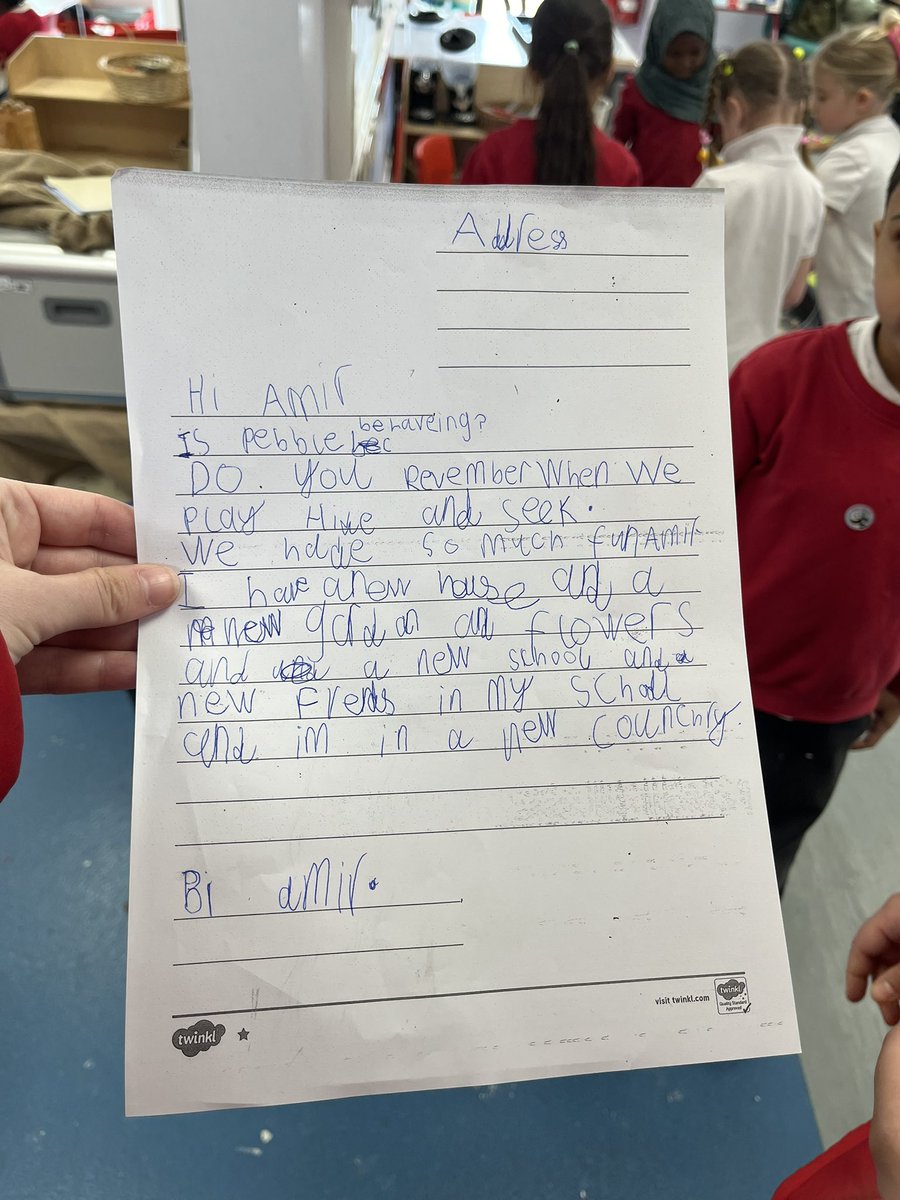 Address
Hi Amir
Is Pebble behaveing?
DO. You Revember When We
Play Hide and Seek.
We hadde so much fun Amir
I have a new house and a
new gardan and flowers
and a new school and a
new Frends in my School
and im in a new Counchry.
Bi amir.
visit twinkl.com
twinkl
Quality Standard
Approved
twinkl